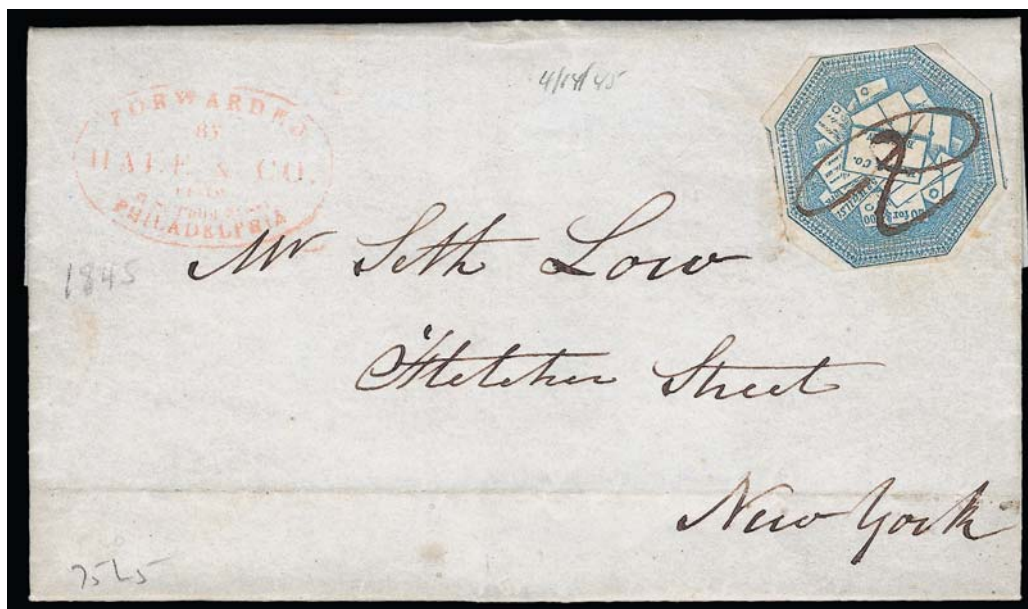 4/14/45
FORWARDED
BY
HALE & CO.
FROM
PHILADELPHIA
1845
Mr Seth Low
Fletcher Street
New York
75L5